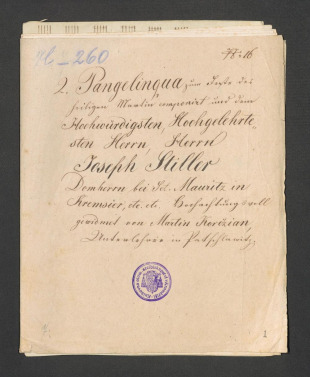 Pl – 260
48:16
2. Pangelingua, zum Feste des
heiligen Martin componirt und dem
Hochwürdigsten, Hochgelehrte-
sten Herrn, Herrn
Joseph Stiller
Domherrn bei Sct. Mauritz in
Kremsier, etc. etc. Hochachtungsvoll
gewidmet von Martin
Unterlehrer in
1